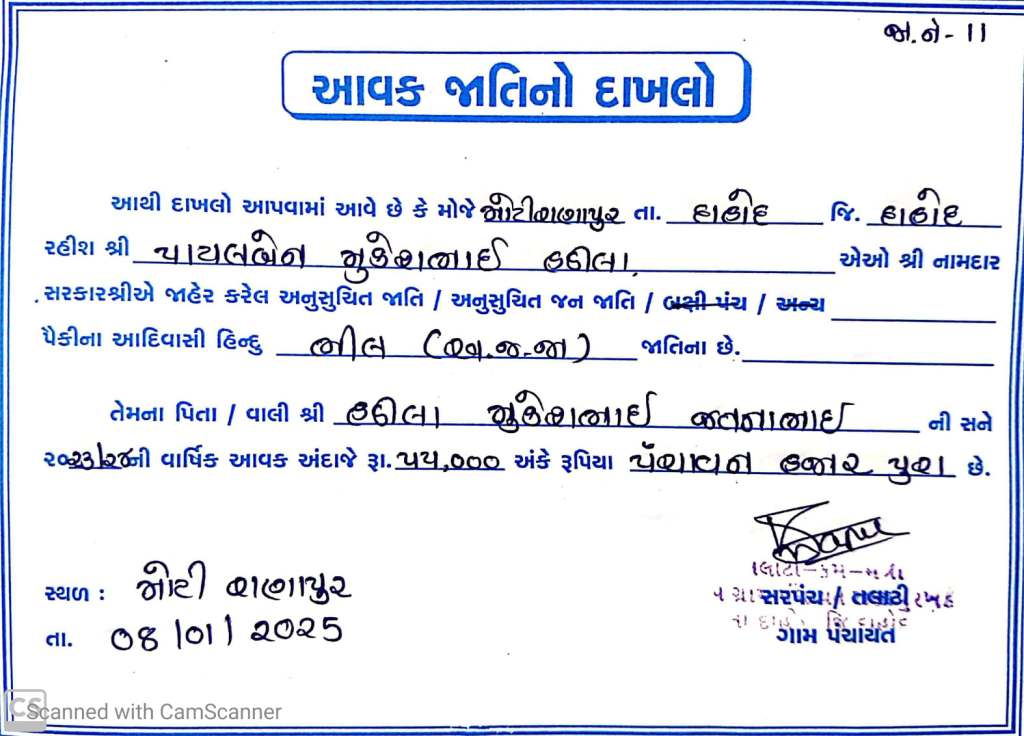 જા.નં - 11
આવક જાતિનો દાખલો
આથી દાખલો આપવામાં આવે છે કે મોજે મોટીરાણાપુર તા. દાહોદ જિ. દાહોદ
રહીશ શ્રી પાયલબેન મુકેશભાઈ હઠીલા એઓ શ્રી નામદાર
સરકારશ્રીએ જાહેર કરેલ અનુસુચિત જાતિ / અનુસુચિત જન જાતિ / બક્ષી પંચ / અન્ય
પૈકીના આદિવાસી હિન્દુ ભીલ (અનુ.જ.જા) જાતિના છે.
તેમના પિતા / વાલી શ્રી હઠીલા મુકેશભાઈ ની સને
૨૦૨૩/૨૪ની વાર્ષિક આવક અંદાજે રૂા. ૫૫,૦૦૦ અંકે રૂપિયા પંચાવન હજાર પુરા છે.
સ્થળ : મોટી રાણાપુર
તલાટી-કમ-મંત્રી
સરપંચ / તલાટી
તા. 08/01/2025
ગામ પંચાયત
CS Scanned with CamScanner